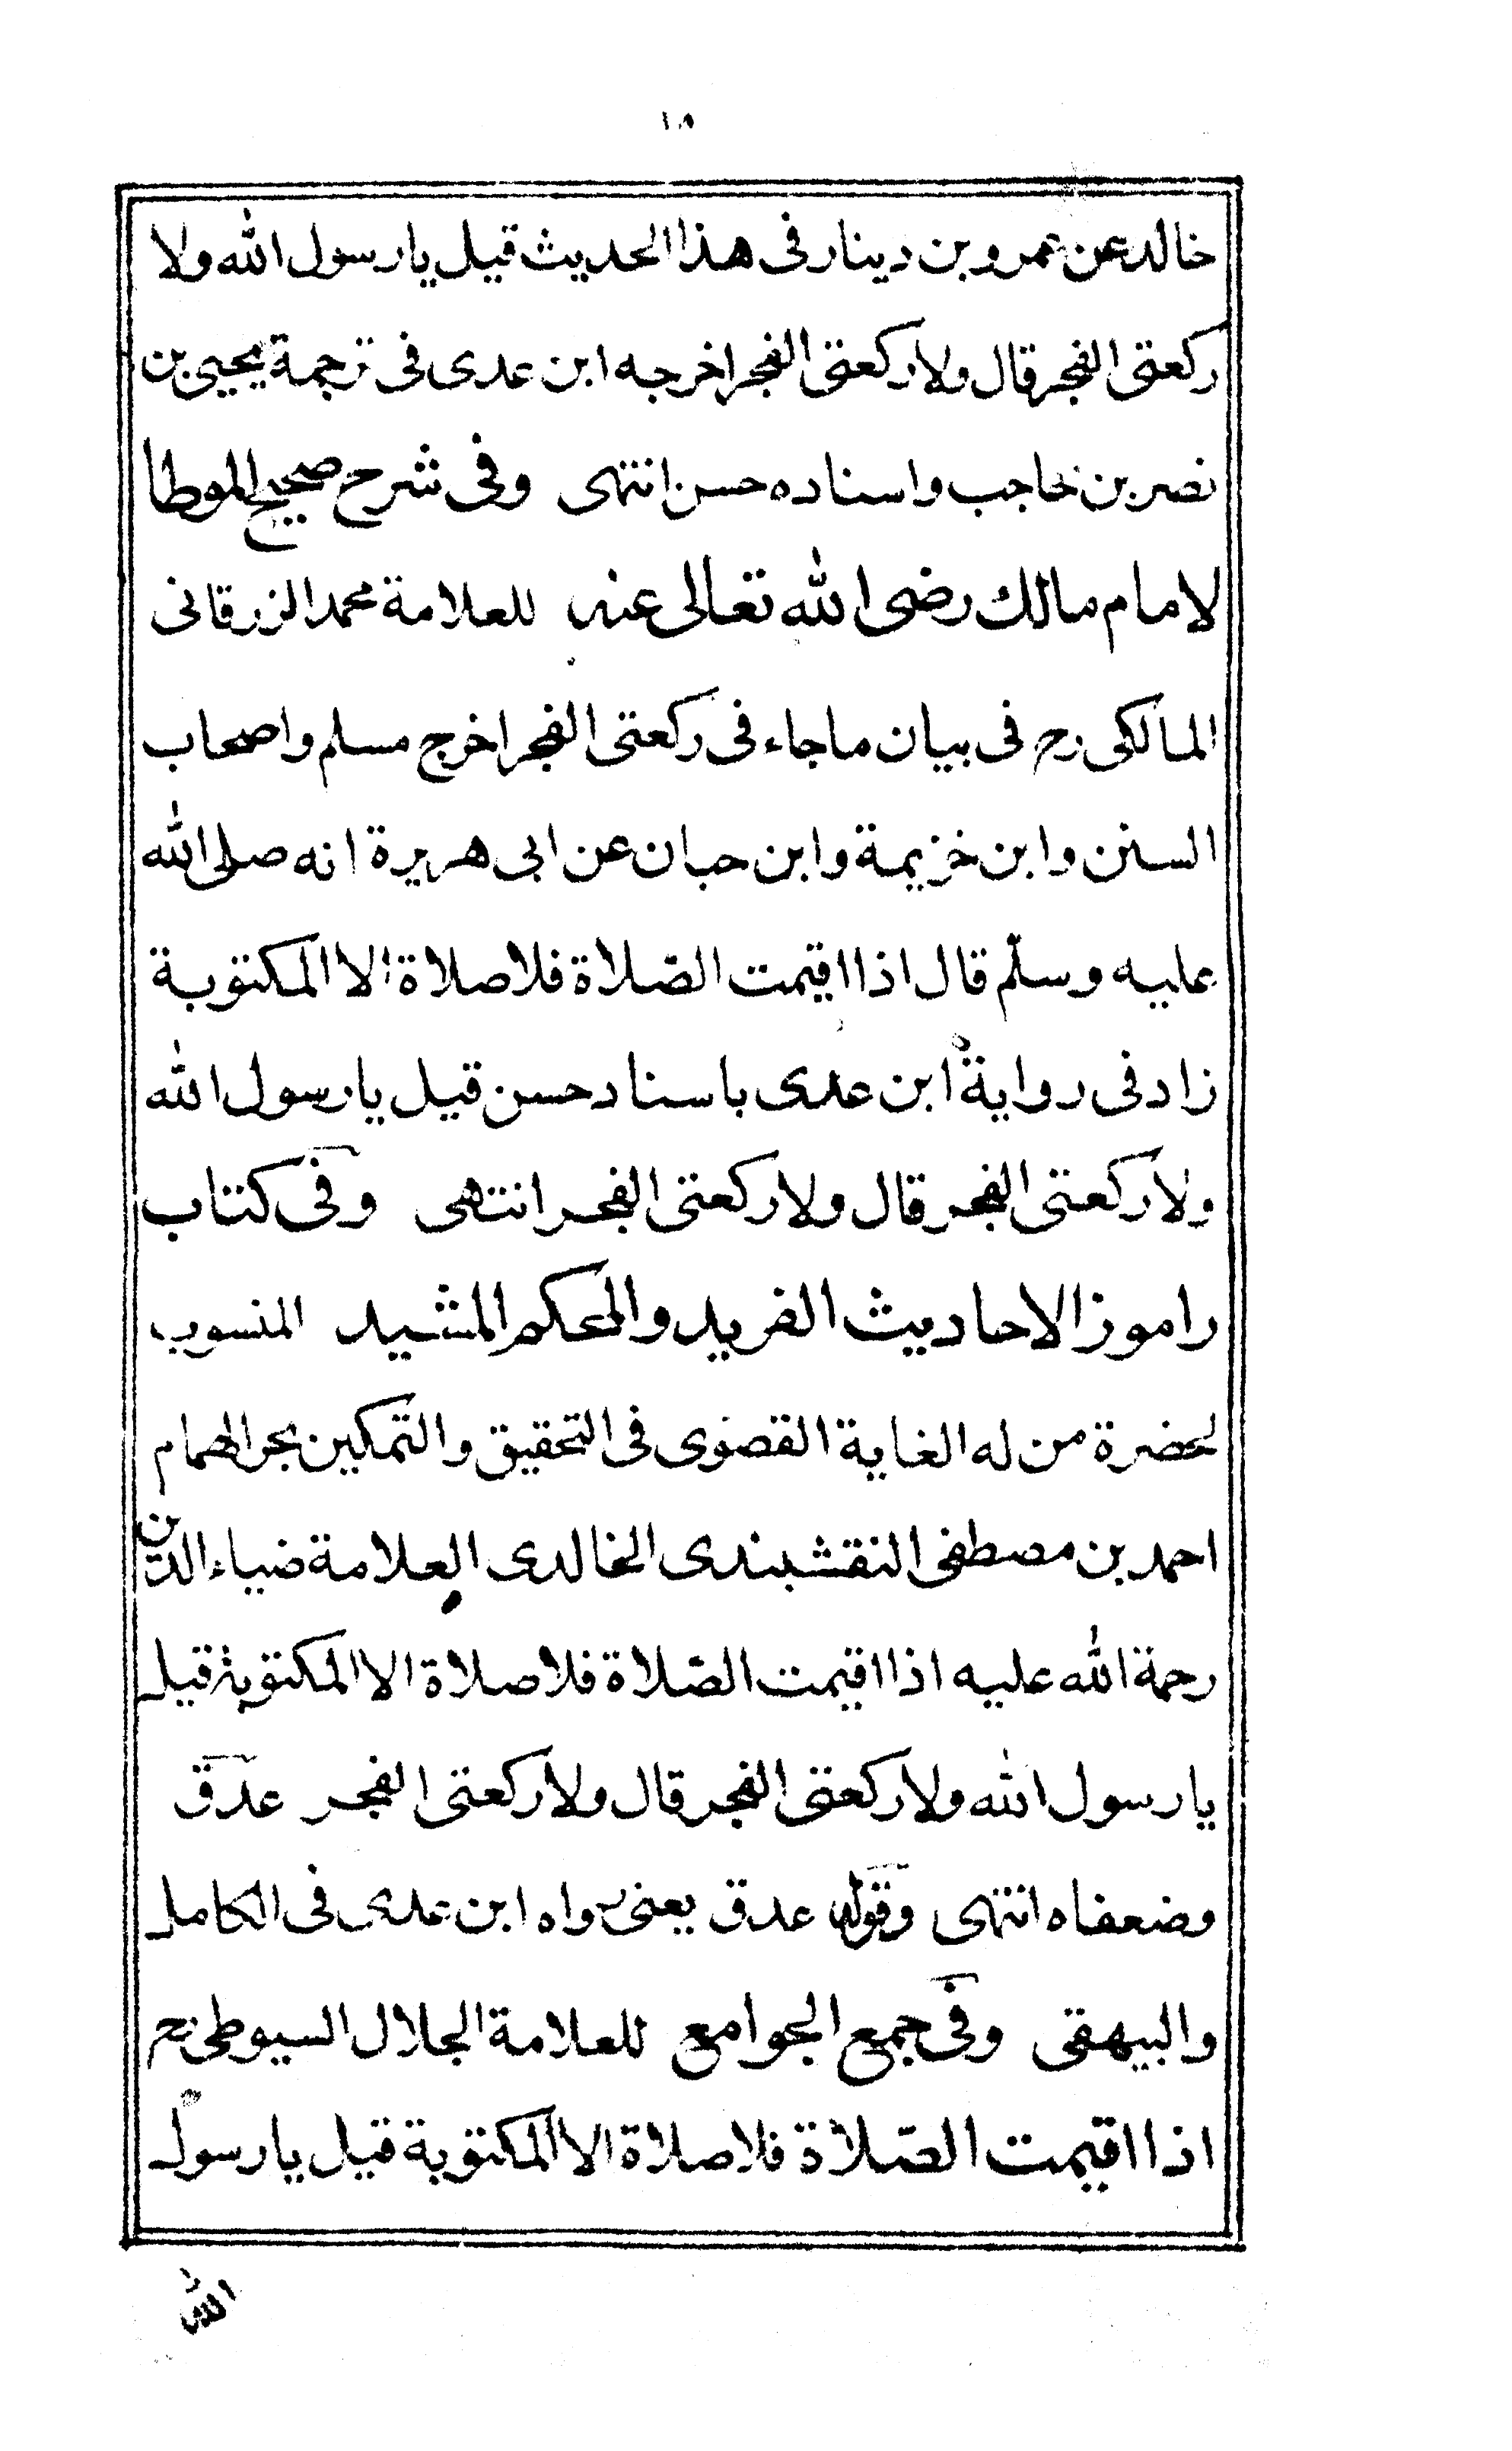 ١٨
خالد عن عمرو بن دينار فى هذا الحديث قيل يا رسول الله ولا
ركعتى الفجر قال ولا ركعتى الفجر اخرجه ابن عدى فى ترجمة يحيى بن
نصر بن حاجب واسناده حسن انتهى وفى شرح صحيح الموطا
لامام مالك رضى الله تعالى عنه للعلامة محمد الزرقانى
المالكى رح فى بيان ما جاء فى ركعتى الفجر اخرج مسلم واصحاب
السنن وابن خزيمة وابن حبان عن ابى هريرة انه صلى الله
عليه وسلّم قال اذا اقيمت الصّلاة فلا صلاة الا المكتوبة
زاد فى رواية ابن عدى باسناد حسن قيل يا رسول الله
ولا ركعتى الفجر قال ولا ركعتى الفجر انتهى وفى كتاب
راموز الاحاديث الفريد والمحكم المشيد المنسوب
لحضرة من له الغاية القصوى فى التحقيق والتمكين بحر الهمام
احمد بن مصطفى النقشبندى الخالدى العلامة ضياء الدين
رحمة الله عليه اذا اقيمت الصّلاة فلا صلاة الا المكتوبة قيل
يا رسول الله ولا ركعتى الفجر قال ولا ركعتى الفجر عد ق
وضعفاه انتهى وقوله عد ق يعنى رواه ابن عدى فى الكامل
والبيهقى وفى جمع الجوامع للعلامة الجلال السيوطى رح
اذا اقيمت الصّلاة فلا صلاة الا المكتوبة قيل يا رسول
الله